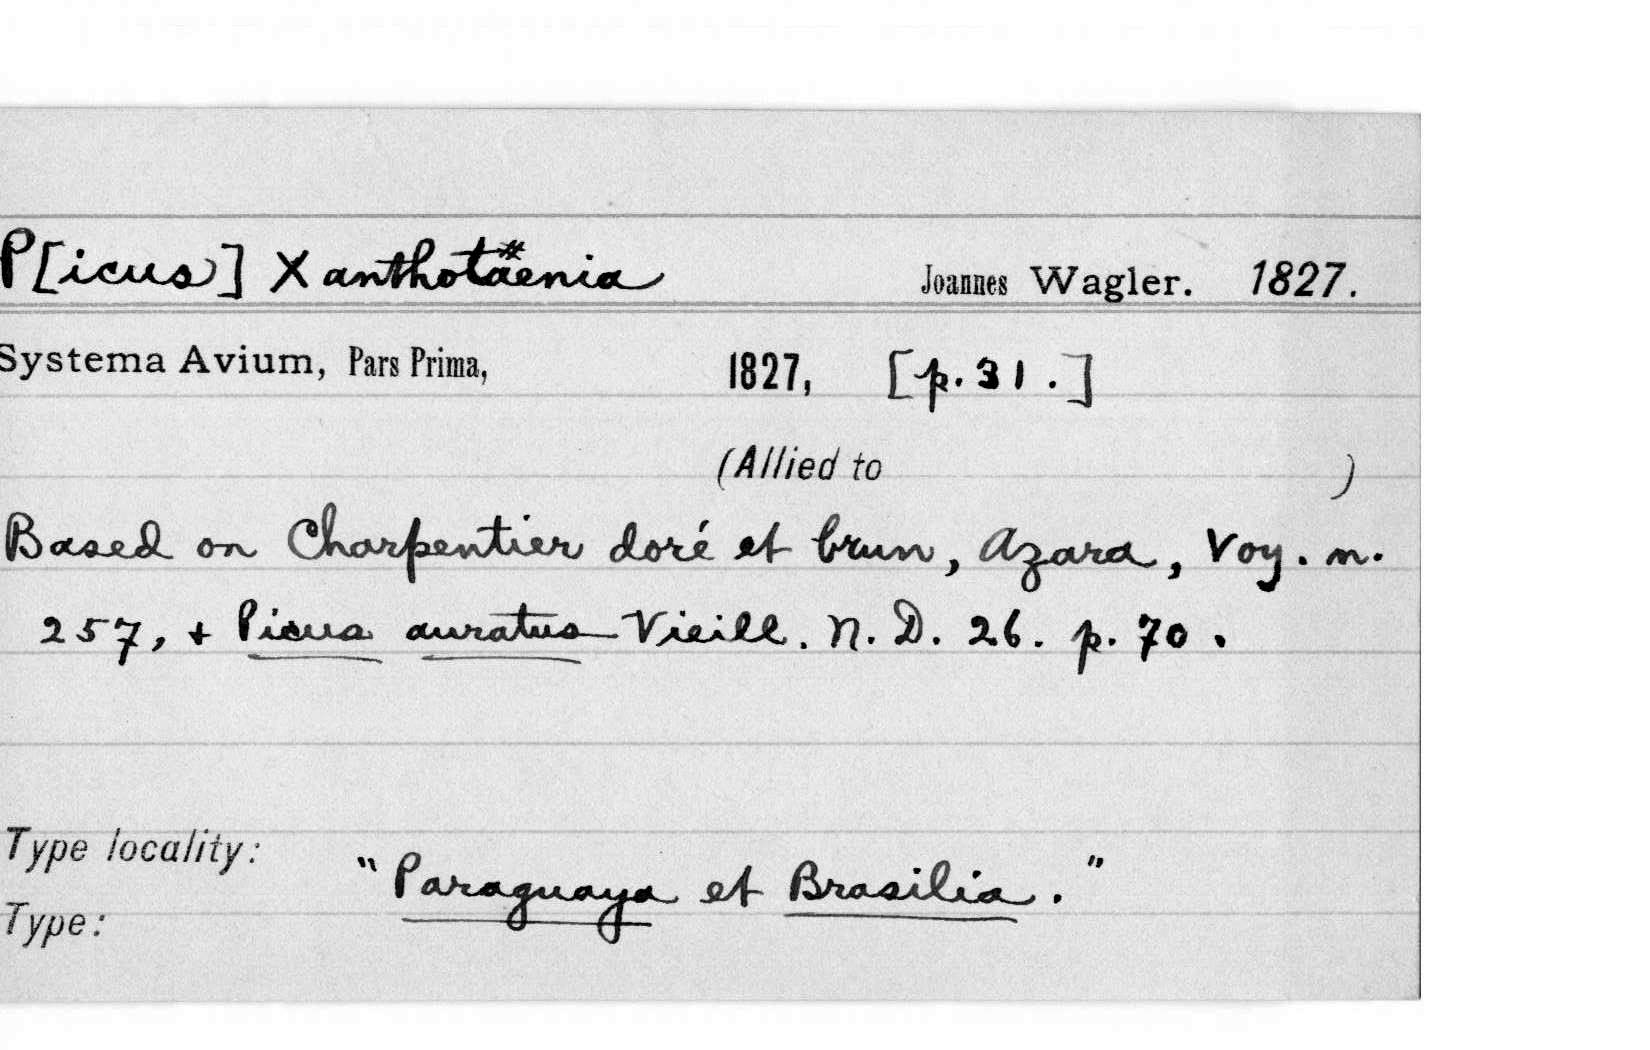 P[icus] Xanthotäenia Joannes Wagler. 1827.
Systema Avium, Pars Prima, 1827, [p. 31.]
(Allied to )
Based on Charpentier doré et brun, Azara, Voy. n.
257, + Picus auratus Vieill. N. D. 26. p. 70.
Type locality: "Paraguaya et Brasilia."
Type: